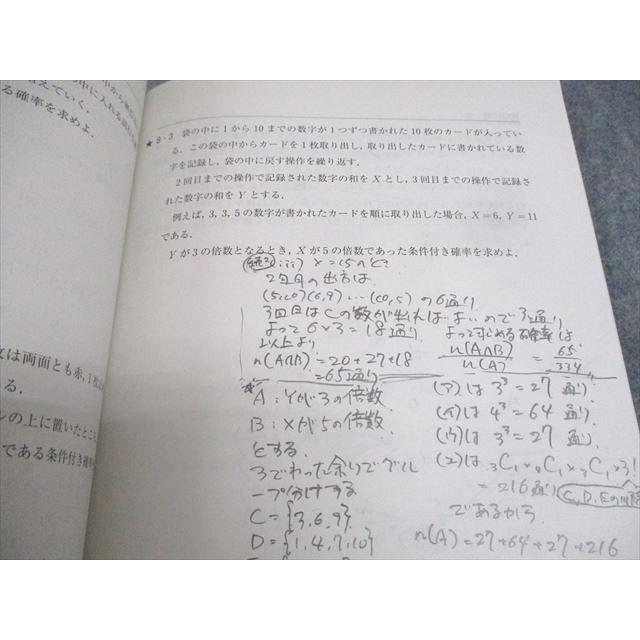 中から無作
の中に入れる試行
増えていく.
る確率を求めよ.
★8・3 袋の中に1から10までの数字が1つずつ書かれた10枚のカードが入ってい
る. この袋の中からカードを1枚取り出し, 取り出したカードに書かれている数
字を記録し, 袋の中に戻す操作を繰り返す.
2回目までの操作で記録された数字の和をXとし, 3回目までの操作で記録さ
れた数字の和をYとする.
例えば, 3, 3, 5の数字が書かれたカードを順に取り出した場合, X=6, Y=11
である.
Yが3の倍数となるとき, Xが5の倍数であった条件付き確率を求めよ.
iii) X=15のとき
2回目の出方は
(5,10)(6,9)…(10,5)の6通り
3回目はCの数が出ればよいので3通り
よって6×3=18通り
以上より
n(A∩B)=20+27+18
=65通り
よって求める確率は
n(A∩B)/n(A) = 65/334
A:Yが3の倍数
B:Xが5の倍数
とする.
3でわった余りでグル
ープ分けする
C={3,6,9}
D={1,4,7,10}
(ア)は 3³=27通り.
(イ)は 4³=64通り.
(ウ)は 3³=27通り.
(エ)は ₃C₁×₄C₁×₃C₁×3!
=216通り
であるから
n(A)=27+64+27+216
枚は両面とも赤, 1枚は
る.
ルの上に置いたところ
である条件付き確率